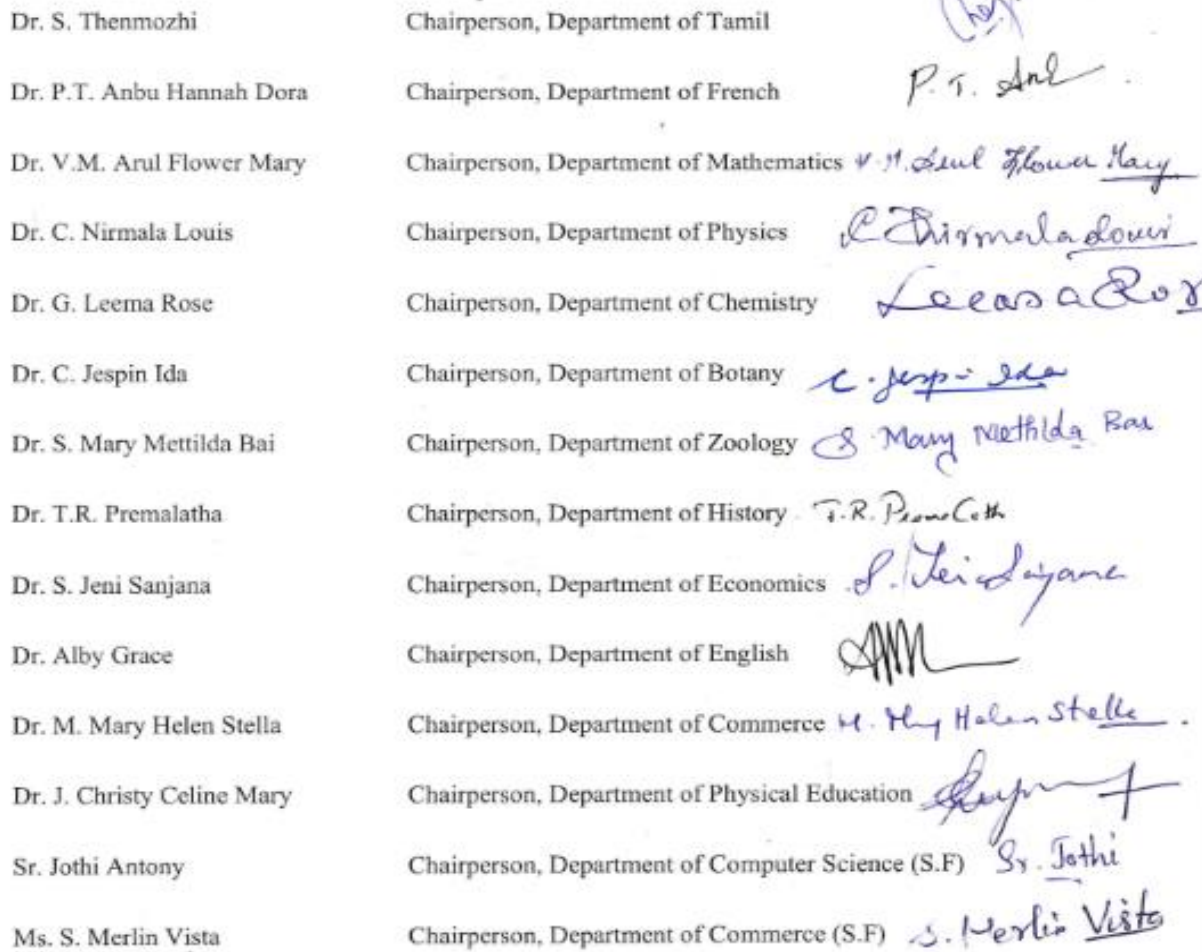 Dr. S. Thenmozhi Chairperson, Department of Tamil
Dr. P.T. Anbu Hannah Dora Chairperson, Department of French P. T. Anb
Dr. V.M. Arul Flower Mary Chairperson, Department of Mathematics V. M. Arul Flower Mary
Dr. C. Nirmala Louis Chairperson, Department of Physics C Nirmala Louis
Dr. G. Leema Rose Chairperson, Department of Chemistry
Dr. C. Jespin Ida Chairperson, Department of Botany C. Jespin Ida
Dr. S. Mary Mettilda Bai Chairperson, Department of Zoology S. Mary Methilda Bai
Dr. T.R. Premalatha Chairperson, Department of History T.R. Premalatha
Dr. S. Jeni Sanjana Chairperson, Department of Economics
Dr. Alby Grace Chairperson, Department of English
Dr. M. Mary Helen Stella Chairperson, Department of Commerce M. Mary Helen Stella.
Dr. J. Christy Celine Mary Chairperson, Department of Physical Education
Sr. Jothi Antony Chairperson, Department of Computer Science (S.F) Sr. Jothi
Ms. S. Merlin Vista Chairperson, Department of Commerce (S.F) S. Merlin Vista